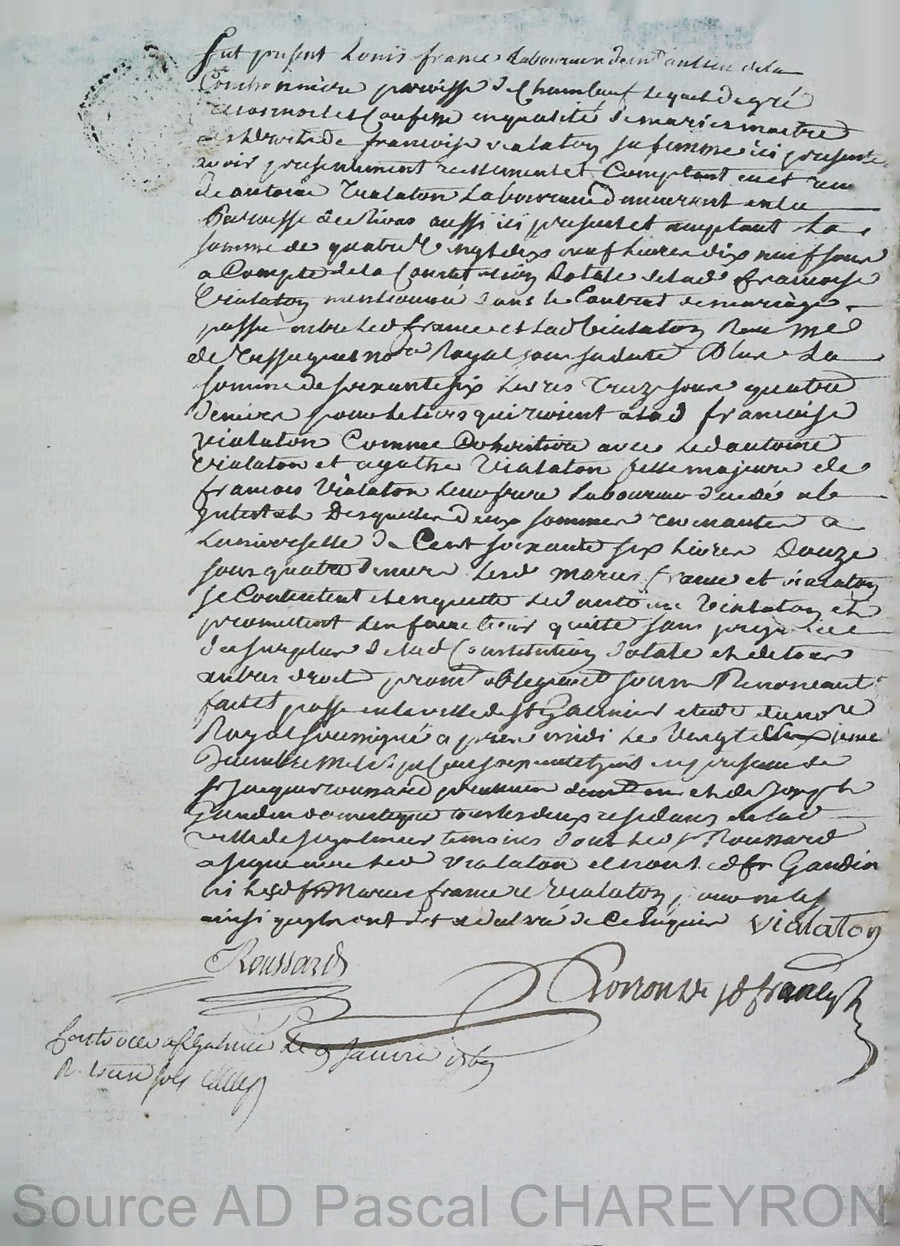 fut présent Louis france Laboureur demt au lieu de la
paroisse de Chambeuf Lequel de gré
Confesse en qualité de mari et maitre
des droits de francoise vialaton sa femme ici presente
avoir presentement reellement et Comptant eu et receu
de antoine Vialaton Laboureur demeurant en la
Paroisse de Rivas aussi ici present et acceptant La
somme de quatre Vingt dix neuf Livres dix neuf sous
a Compte de la Constitution Dotale de lad francoise
Vialaton mentionné dans le Contrat de mariage
passé entre led france et lad Vialaton Receu Me
no re Royal sous sa date Plus La
somme de soixante six Livres Treze sous quatre
deniers pour le tiers qui revient a lad francoise
vialaton Comme Cohéritiere avec led antoine
Vialaton et agathe Vialaton fille majeure de
francois Vialaton Leur frere Laboureur décédé ab
Intestat Desquelles deux sommes revenantes a
Luniverselle de Cent soixante six Livres Douze
sous quatre deniers Lesd mariés france et vialaton
se Contentent et en quitte led antoine Vialaton et
promettent len faire tenir quitte sans prejudice
du surplus de lad Constitution dotale et de tous
autres droits prom obligeant soum Renoncant
fait et passé en la ville de St Galmier etude du no re
Royal soussigné apres midi Le Vingt
Decembre Mil sept Cent soixante en presence de
sr Jacques Roussard et de Joseph
Gandin domestique tous les deux residans en lad
ville de st galmier temoins dont led sr Roussard
a signé avec led Vialaton et non led Gandin
ni lesd Mariés france et Vialaton pour ne les
ainsi quils ont dit et déclaré de Ce enquis vialaton
Roussard
Ronzon
Controllé a st Galmier Le 9 Janvier
R. treize sols
Source AD Pascal CHAREYRON